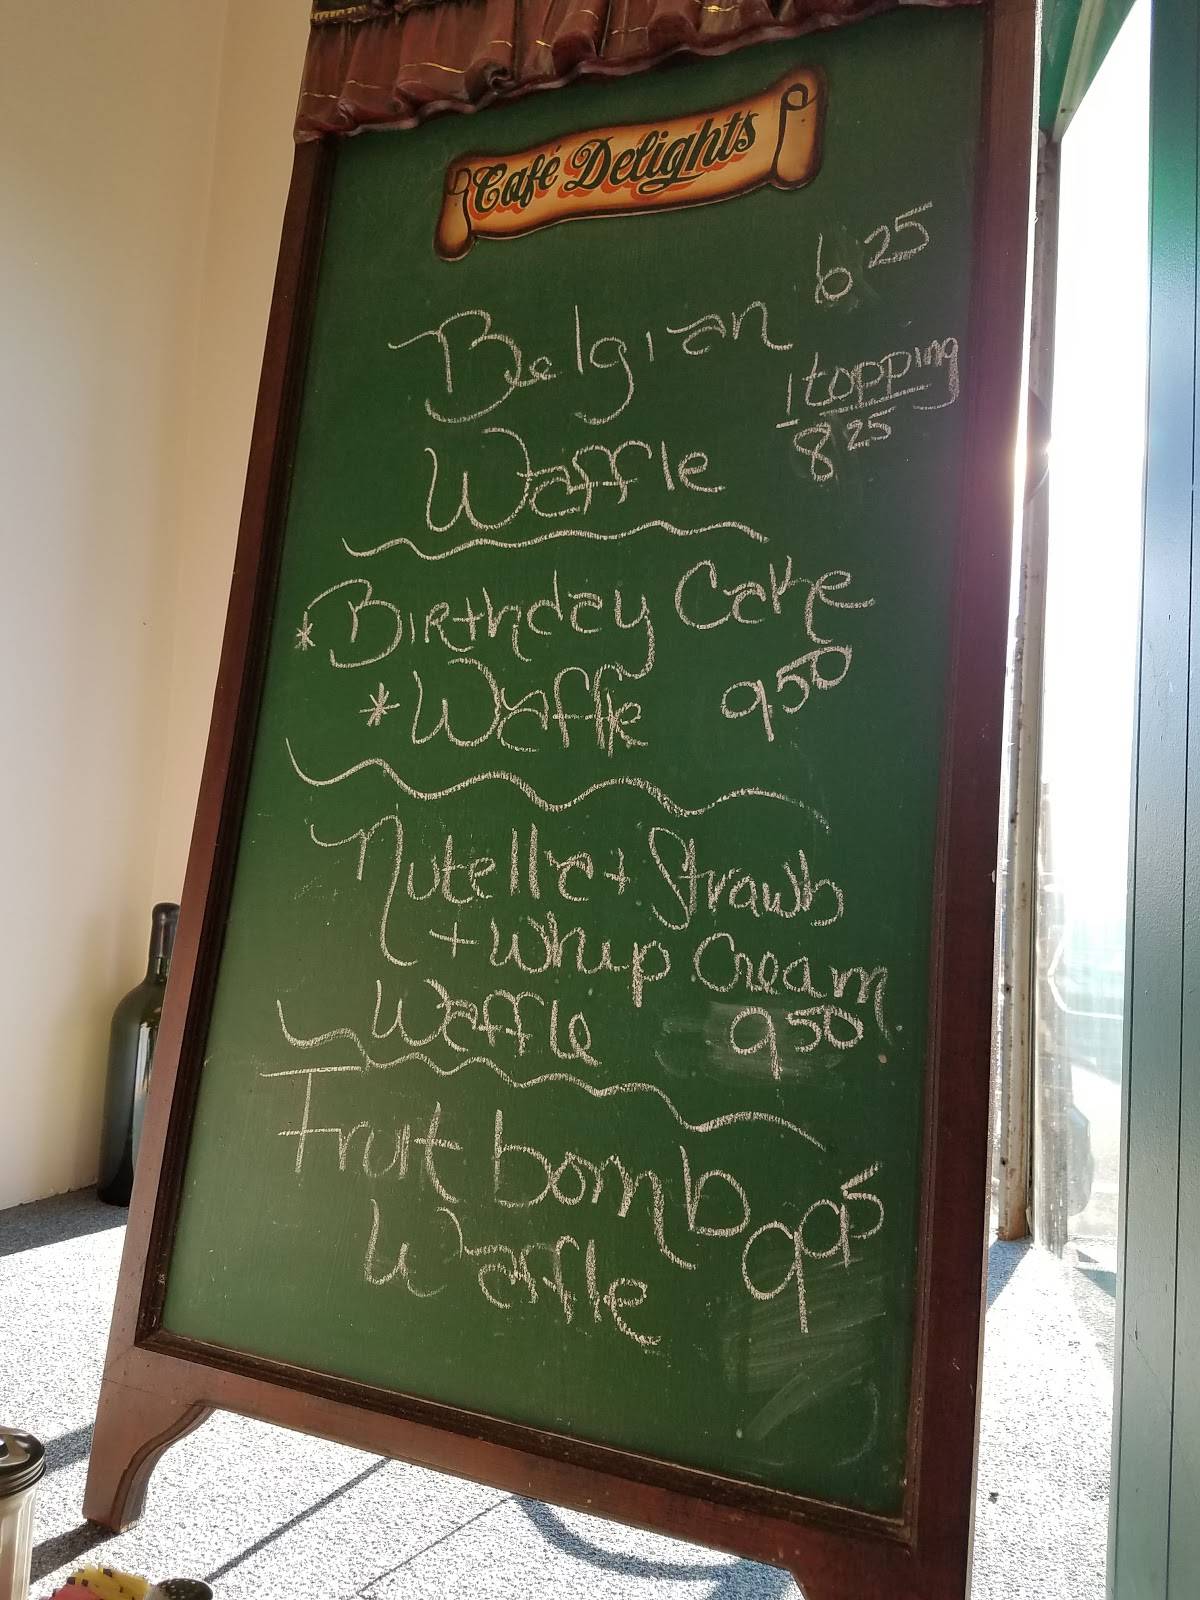 Café Delights
6 25
Belgian
1 topping
8 25
Waffle
* Birthday Cake
* Waffle 9 50
Nutella + Strawb
+ Whip Cream
Waffle 9 50
Fruit bomb
Waffle 9 95